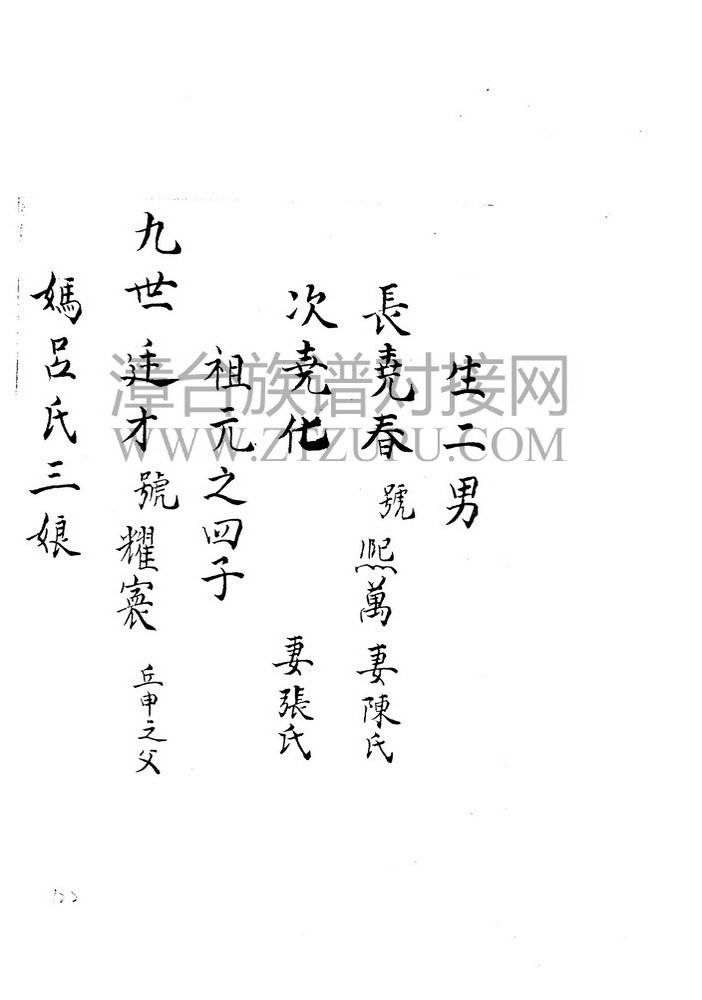 生二男
長堯春號熙萬妻陳氏
次堯化妻張氏
祖元之四子
九世廷才號耀寰丘申之父
媽呂氏三娘
漳台族谱对接网
WWW.ZTZUPU.COM
122